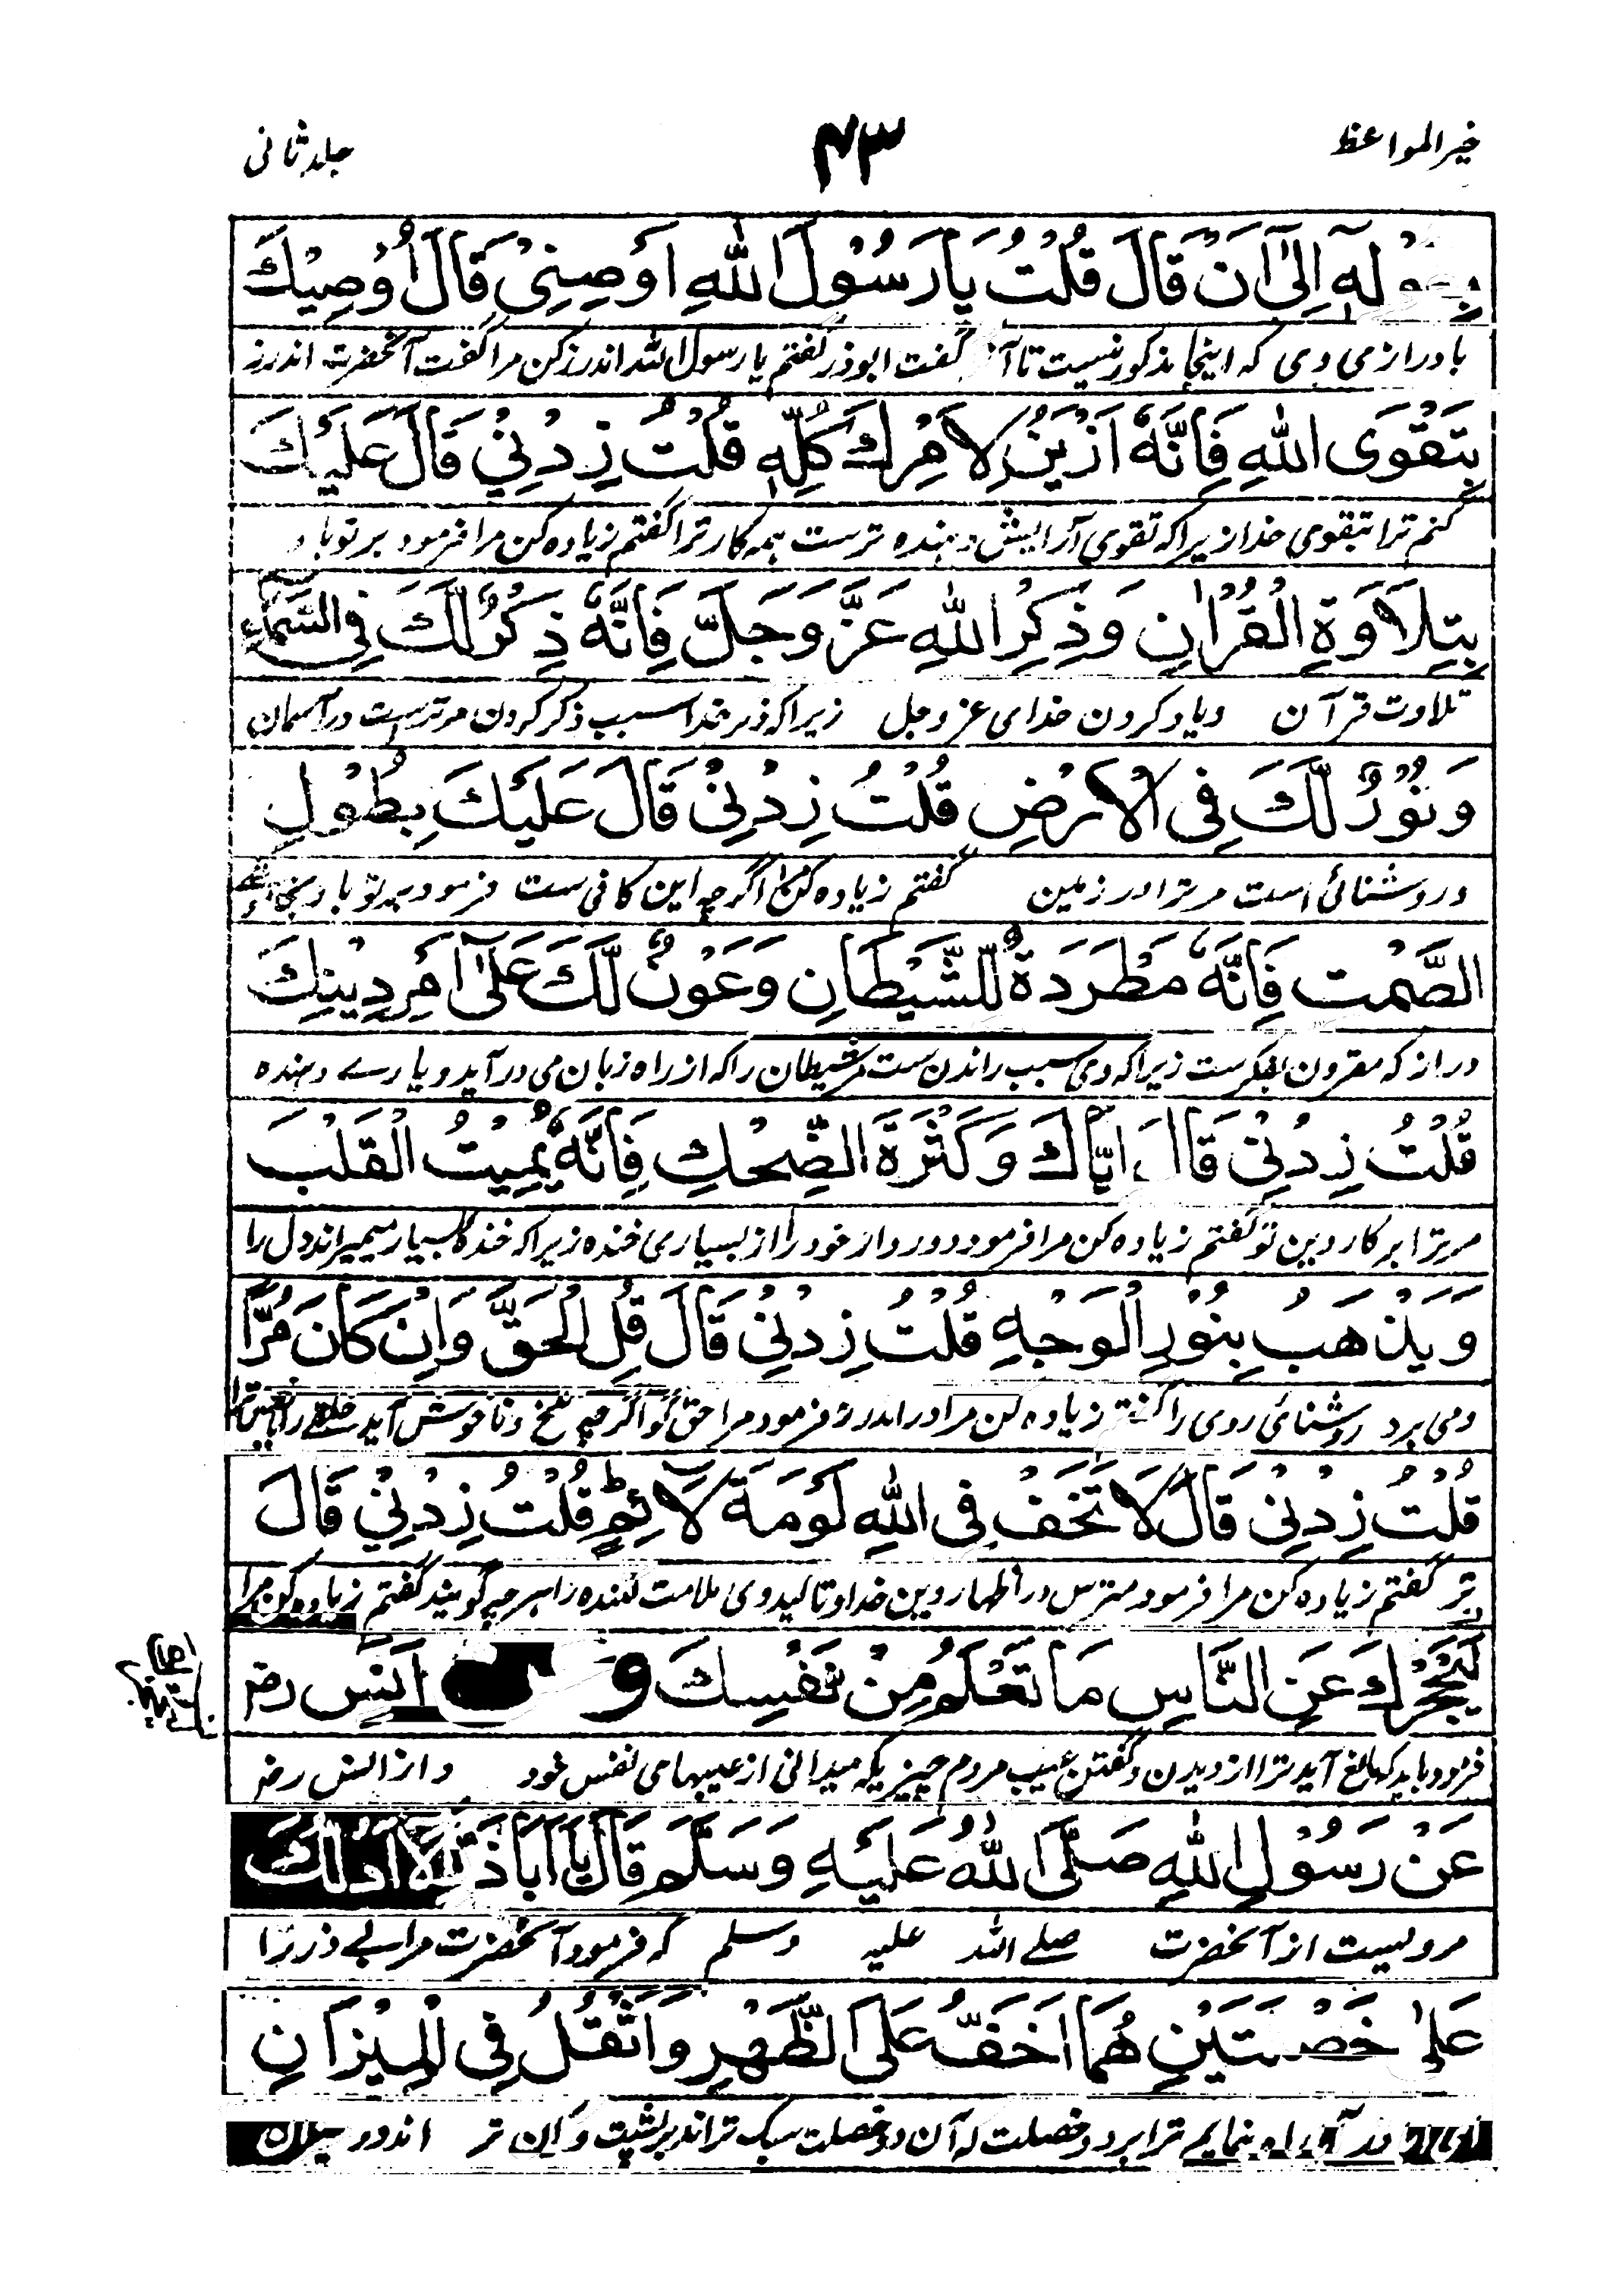 خیر المواعظ
۴۳
جلد ثانی
بِطُوْلِهٖ اِلٰى اَنْ قَالَ قُلْتُ يَا رَسُوْلَ اللهِ اَوْصِنِيْ قَالَ اُوْصِيْكَ
با درازی وی که اینجا مذکور نیست تا آنکه گفت ابوذر گفتم یا رسول الله اندرز کن مرا گفت آنحضرت اندرز
بِتَقْوَى اللهِ فَاِنَّهٗ اَزْيَنُ لِاَمْرِكَ كُلِّهٖ قُلْتُ زِدْنِيْ قَالَ عَلَيْكَ
کنم ترا بتقوی خدا زیرا که تقوی آرایش دهنده ترست همه کار ترا گفتم زیاده کن مرا فرمود بر تو باد
بِتِلَاوَةِ الْقُرْاٰنِ وَذِكْرِ اللهِ عَزَّ وَجَلَّ فَاِنَّهٗ ذِكْرٌ لَّكَ فِي السَّمَآءِ
تلاوت قرآن ویاد کردن خدای عز وجل زیرا که ذکر خدا سبب ذکر کردن مر ترست در آسمان
وَنُوْرٌ لَّكَ فِي الْاَرْضِ قُلْتُ زِدْنِيْ قَالَ عَلَيْكَ بِطُوْلِ
وروشنائی است مر ترا در زمین گفتم زیاده کن مرا اگرچه این کافی ست فرمود بر تو باد
الصَّمْتِ فَاِنَّهٗ مَطْرَدَةٌ لِّلشَّيْطَانِ وَعَوْنٌ لَّكَ عَلٰى اَمْرِ دِيْنِكَ
دراز که مقرون بفکرست زیرا که وی سبب راندن ست مر شیطان را که از راه زبان می در آید ویاری دهنده
قُلْتُ زِدْنِيْ قَالَ اِيَّاكَ وَكَثْرَةَ الضِّحْكِ فَاِنَّهٗ يُمِيْتُ الْقَلْبَ
مر ترا بر کار دین تو گفتم زیاده کن مرا فرمود دور دار خود را از بسیاری خنده زیرا که خنده بسیار میمیراند دل را
وَيَذْهَبُ بِنُوْرِ الْوَجْهِ قُلْتُ زِدْنِيْ قَالَ قُلِ الْحَقَّ وَاِنْ كَانَ مُرًّا
ومی برد روشنائی روی را گفتم زیاده کن مرا در اندرز فرمود مرا حق گو اگرچه تلخ وناخوش آید
قُلْتُ زِدْنِيْ قَالَ لَا تَخَفْ فِي اللهِ لَوْمَةَ لَائِمٍ قُلْتُ زِدْنِيْ قَالَ
گفتم زیاده کن مرا فرمود مترس در اظهار دین خدا وتائید وی ملامت کننده را هرچه گویند گفتم زیاده کن مرا
لِيَحْجُزْكَ عَنِ النَّاسِ مَا تَعْلَمُ مِنْ نَّفْسِكَ و اَنَسٍ رض
فرمود باید که مانع آید ترا از دیدن وگفتن عیب مردم چیزیکه میدانی از عیبهای نفس خود واز انس رض
عَنْ رَسُوْلِ اللهِ صَلَّى اللهُ عَلَيْهِ وَسَلَّمَ قَالَ يَا اَبَا ذَرٍّ اَلَا اَدُلُّكَ
مرویست از آنحضرت صلے الله علیه وسلم که فرمود آنحضرت مر ابی ذر را
عَلٰى خَصْلَتَيْنِ هُمَا اَخَفُّ عَلَى الظَّهْرِ وَاَثْقَلُ فِي الْمِيْزَانِ
راه بنمایم ترا بر دو خصلت که آن دو خصلت سبک تراند بر پشت وگران تر اند در میزان